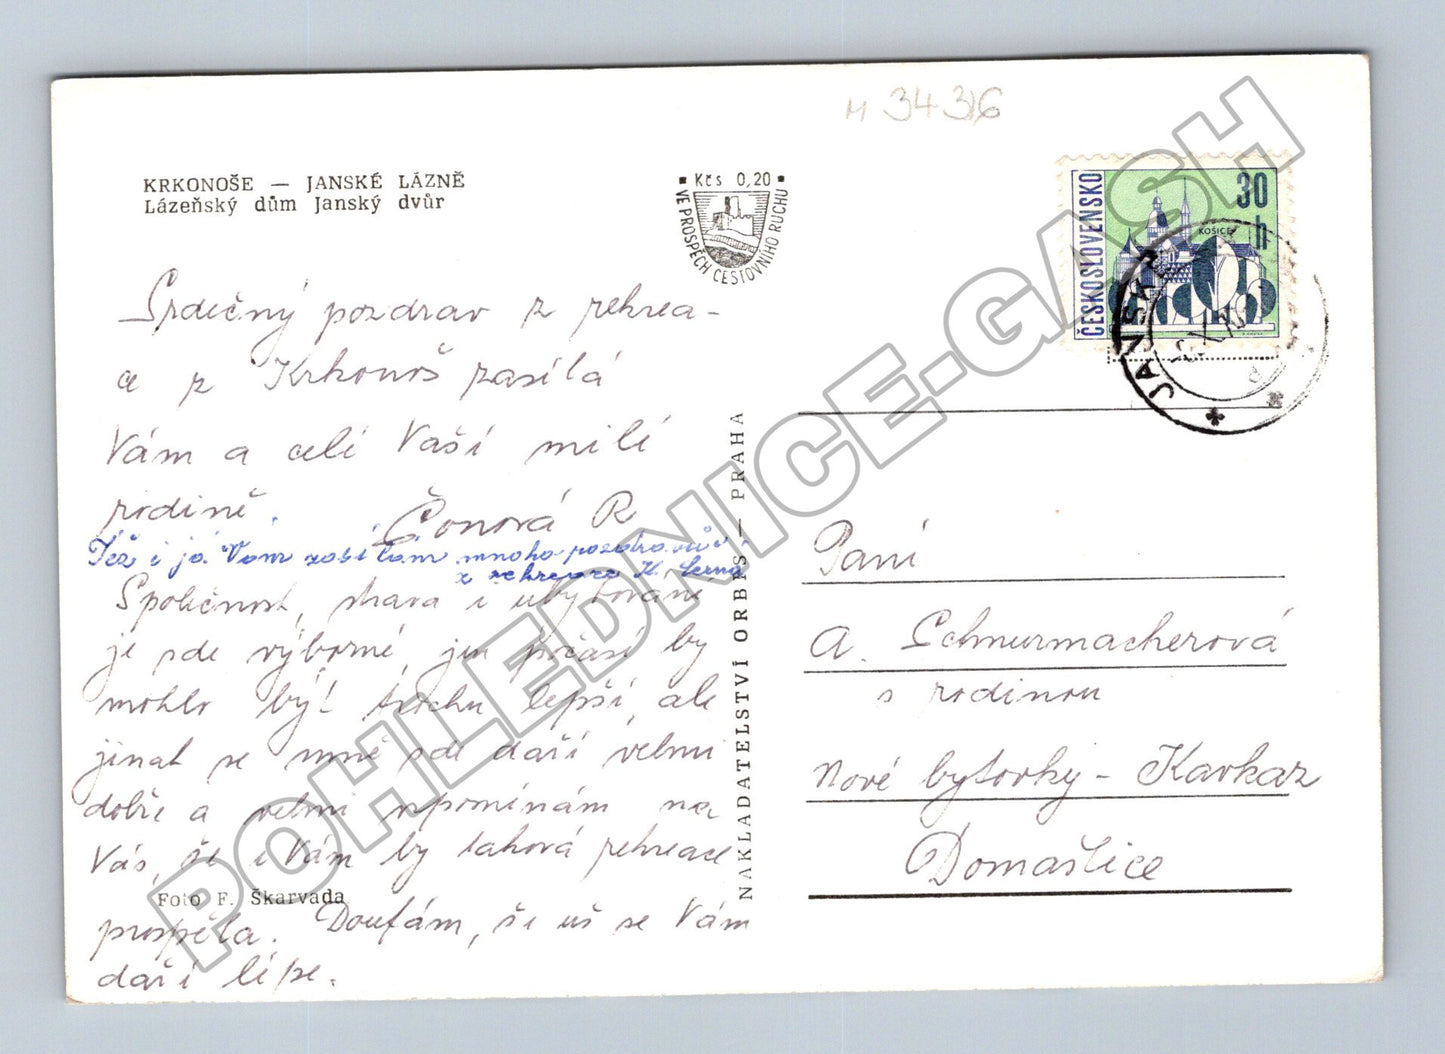 M 3436
KRKONOŠE — JANSKÉ LÁZNĚ
Lázeňský dům Janský dvůr
Kčs 0,20
VE PROSPĚCH CESTOVNÍHO RUCHU
ČESKOSLOVENSKO
30 h
KOŠICE
JANSKÉ
Srdečný pozdrav z rehrea-
ce z Krkonoš zasílá
Vám a celé Vaší milé
rodině. Čonová R
Též i já Vám zasílám mnoho pozdravů
z rekreace
Společnost, strava i ubytování
je zde výborné, jen počasí by
mohlo být trochu lepší, ale
jinak se mně zde daří velmi
dobře a velmi vzpomínám na
Vás, že i Vám by taková rehreace
Foto F. Škarvada
prospěla. Doufám, že už se Vám
daří lépe.
NAKLADATELSTVÍ ORBIS — PRAHA
Paní
A. Schnurmacherová
s rodinou
Nové bytovky - Kavkaz
Domažlice
POHLEDNICE-GASH